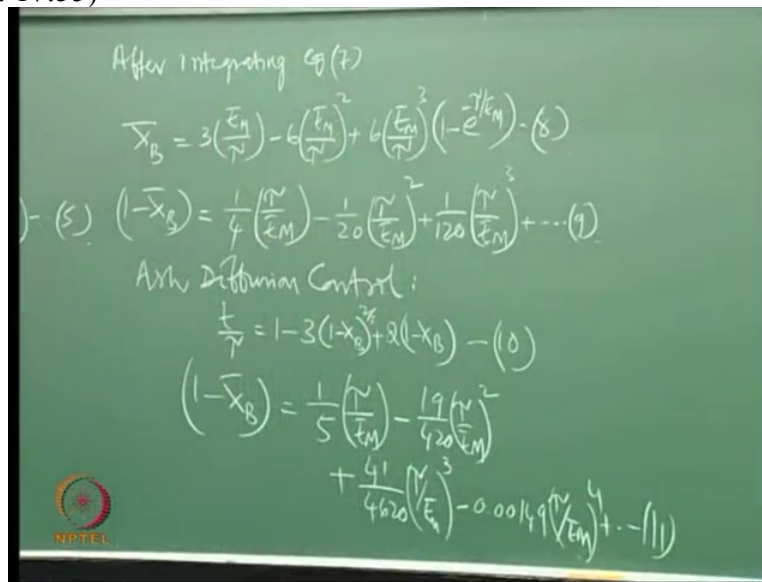 17:55)
After integrating eq (7)
X̄_B = 3(t̄_M/τ) - 6(t̄_M/τ)² + 6(t̄_M/τ)³ (1 - e^(-τ/t̄_M)) - (8)
) - (5) (1 - X̄_B) = 1/4 (τ/t̄_M) - 1/20 (τ/t̄_M)² + 1/120 (τ/t̄_M)³ + ... (9)
Ash Diffusion Control :
t/τ = 1 - 3(1 - X_B)^(2/3) + 2(1 - X_B) - (10)
(1 - X̄_B) = 1/5 (τ/t̄_M) - 19/420 (τ/t̄_M)²
+ 41/4620 (τ/t̄_M)³ - 0.00149 (τ/t̄_M)⁴ + .. - (11)
NPTEL